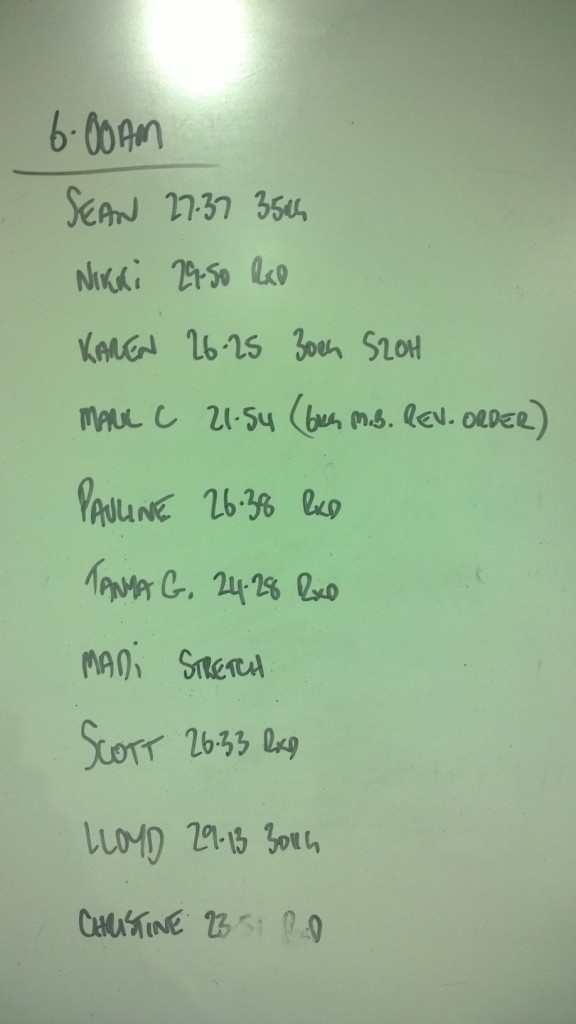 6.00AM
SEAN 27.37 35KG
NIKKi 29.50 RxD
KAREN 26.25 30KG S2OH
MARK C 21.54 (6KG M.B. REV. ORDER)
PAULINE 26.38 RxD
TANYA G. 24.28 RxD
MADi STRETCH
SCOTT 26.33 RxD
LLOYD 29.13 30KG
CHRISTINE 23.51 RxD